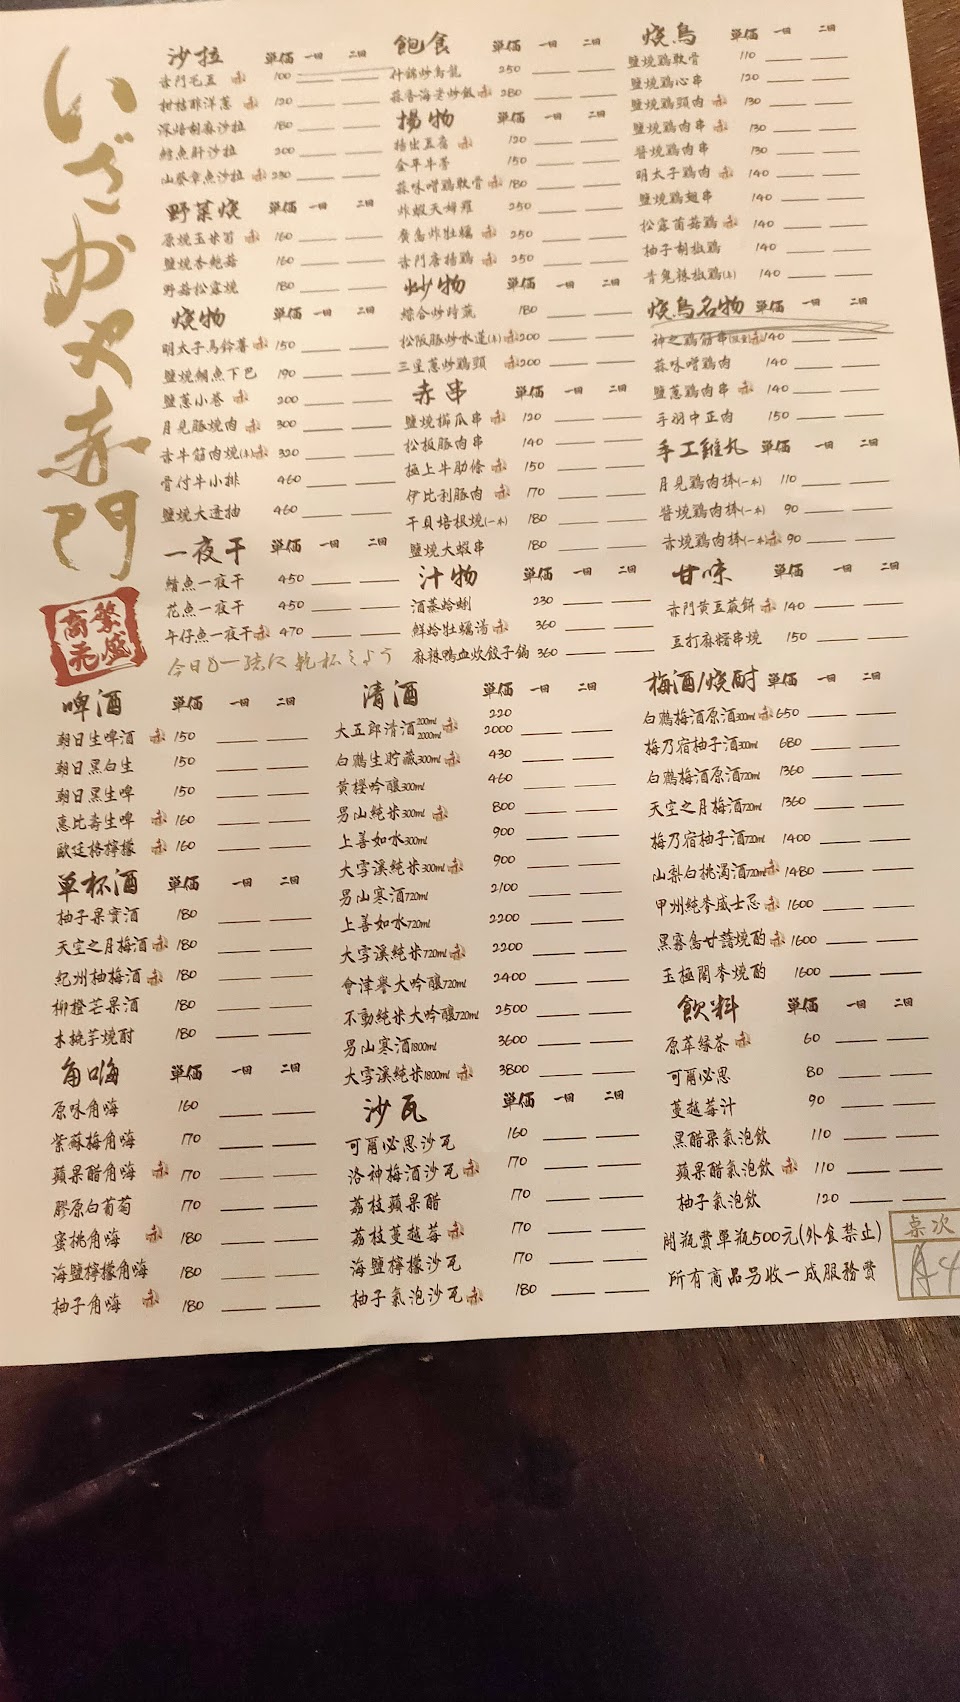 いざかや赤門
商売繁盛
沙拉 単価 一回 二回
赤門毛豆 赤 100
柑桔酢洋蔥 赤 120
深焙胡麻沙拉 180
鱈魚肝沙拉 200
山葵章魚沙拉 赤 230
野菜燒 単価 一回 二回
原燒玉米筍 赤 160
鹽燒杏鮑菇 160
野菇松露燒 180
燒物 単価 一回 二回
明太子馬鈴薯 赤 150
鹽燒鯛魚下巴 190
鹽蔥小卷 赤 200
月見豚燒肉 赤 300
赤牛筋肉燒(辣)赤 320
骨付牛小排 460
鹽燒大透抽 460
一夜干 単価 一回 二回
鯖魚一夜干 450
花魚一夜干 450
午仔魚一夜干 赤 470
飽食 単価 一回 二回
什錦炒烏龍 250
蒜香海老炒飯 赤 280
揚物 単価 一回 二回
揚出豆腐 赤 120
金平牛蒡 150
蒜味噌鶏軟骨 赤 180
炸蝦天婦羅 250
廣島炸牡蠣 赤 250
赤門唐揚鶏 赤 250
炒物 単価 一回 二回
綜合炒時蔬 180
松阪豚炒水蓮 赤 200
三星蔥炒鶏頸 赤 200
赤串 単価 一回 二回
鹽燒櫛瓜串 赤 120
松板豚肉串 140
極上牛肋條 赤 150
伊比利豚肉 赤 170
干貝培根燒(一本) 180
鹽燒大蝦串 180
汁物 単価 一回 二回
酒蒸蛤蜊 230
鮮蛤牡蠣湯 赤 360
麻辣鴨血炊餃子鍋 360
燒鳥 単価 一回 二回
鹽燒鶏軟骨 110
鹽燒鶏心串 120
鹽燒鶏頸肉 赤 130
鹽燒鶏肉串 赤 130
醬燒鶏肉串 130
明太子鶏肉 赤 140
鹽燒鶏翅串 140
松露菌菇鶏 赤 140
柚子胡椒鶏 140
青鬼辣椒鶏 140
燒鳥名物 単価 一回 二回
神之鶏筋串(限量)赤 140
蒜味噌鶏肉 140
鹽蔥鶏肉串 赤 140
手羽中正肉 150
手工雞丸 単価 一回 二回
月見鶏肉棒(一本) 110
醬燒鶏肉棒(一本) 90
赤燒鶏肉棒(一本)赤 90
甘味 単価 一回 二回
赤門黄豆蕨餅 赤 140
豆打麻糬串燒 150
今日も一緒に乾杯しよう
啤酒 単価 一回 二回
朝日生啤酒 赤 150
朝日黑白生 150
朝日黑生啤 150
惠比壽生啤 赤 160
歐廷格檸檬 赤 160
單杯酒 単価 一回 二回
柚子果實酒 180
天空之月梅酒 赤 180
紀州柚梅酒 赤 180
柳橙芒果酒 180
木挽芋燒酎 180
角嗨 単価 一回 二回
原味角嗨 160
紫蘇梅角嗨 170
蘋果醋角嗨 赤 170
膠原白葡萄 170
蜜桃角嗨 赤 180
海鹽檸檬角嗨 180
柚子角嗨 赤 180
清酒 単価 一回 二回
大五郎清酒 200ml 2000ml 赤 220 2000
白鶴生貯藏300ml 赤 430
黄櫻吟釀300ml 460
男山純米300ml 赤 800
上善如水300ml 900
大雪溪純米300ml 赤 900
男山寒酒720ml 2100
上善如水720ml 2200
大雪溪純米720ml 赤 2200
會津譽大吟釀720ml 2400
不動純米大吟釀720ml 2500
男山寒酒1800ml 3600
大雪溪純米1800ml 赤 3800
沙瓦 単価 一回 二回
可爾必思沙瓦 160
洛神梅酒沙瓦 赤 170
荔枝蘋果醋 170
荔枝蔓越莓 赤 170
海鹽檸檬沙瓦 170
柚子氣泡沙瓦 赤 180
梅酒/燒酎 単価 一回 二回
白鶴梅酒原酒300ml 赤 650
梅乃宿柚子酒300ml 680
白鶴梅酒原酒720ml 1360
天空之月梅酒720ml 1360
梅乃宿柚子酒720ml 1400
山梨白桃濁酒720ml 赤 1480
甲州純麥威士忌 赤 1600
黑霧島甘藷燒酌 赤 1600
玉極閣麥燒酌 1600
飲料 単価 一回 二回
原萃綠茶 赤 60
可爾必思 80
蔓越莓汁 90
黑醋栗氣泡飲 110
蘋果醋氣泡飲 赤 110
柚子氣泡飲 120
開瓶費單瓶500元(外食禁止)
所有商品另收一成服務費
桌次
A4